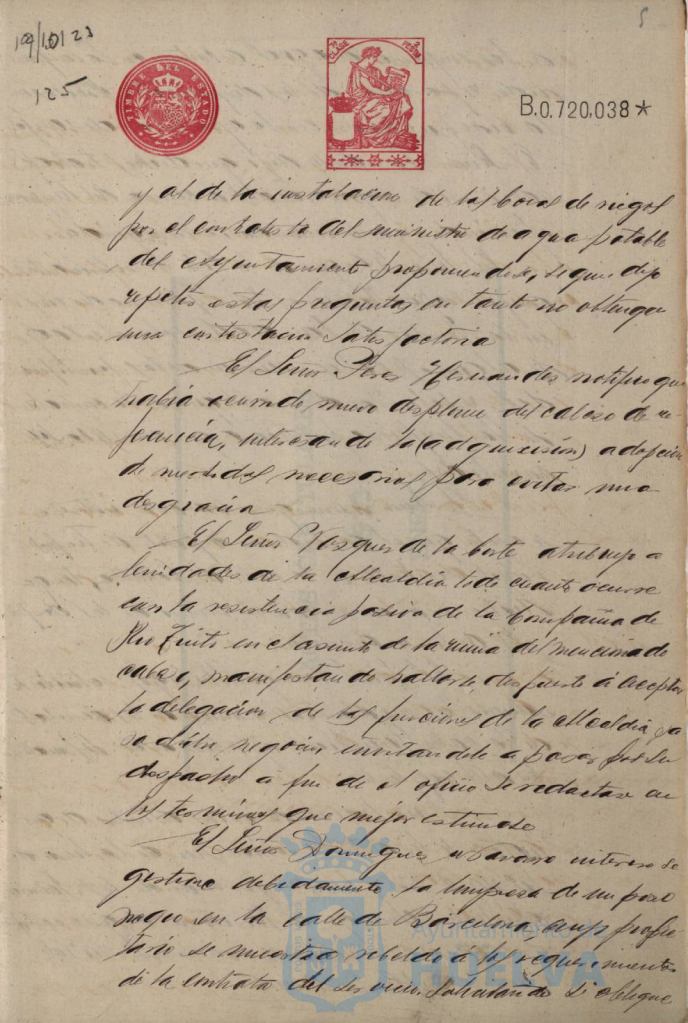 5
19/10/23
125
TIMBRE DEL ESTADO
CLASE
B.0.720.038*
y al de la instalacion de las bocas de riegos
por el contratista del suministro de agua potable
del Ayuntamiento proponiendose, segun dijo
repetir estas preguntas en tanto no obtenga
una contestacion satisfactoria
El Señor Perez Hernandez notifico que
habia ocurrido nuevo desplome del cabezo de
interesando la (adquisición) adopción
de medidas necesarias para evitar una
desgracia
El Señor Vazquez de la Corte atribuyo a
lenidades de la Alcaldia todo cuanto ocurre
con la resistencia pasiva de la Compañia de
Rio Tinto en el asunto de la ruina del mencionado
cabezo, manifestando hallarse dispuesto á aceptar
la delegacion de las funciones de la Alcaldia, pa
ra dicho negocio invitandole a pasar por su
despacho a fin de el oficio se redactase en
los terminos que mejor estimase
El Señor Dominguez Navarro intereso se
gestione debidamente la limpieza de un pozo
negro en la calle de Barcelona, cuyo propie
tario se muestra rebelde á los requerimientos
de la contrata del servicio, se obligue
Ayuntamiento de
HUELVA